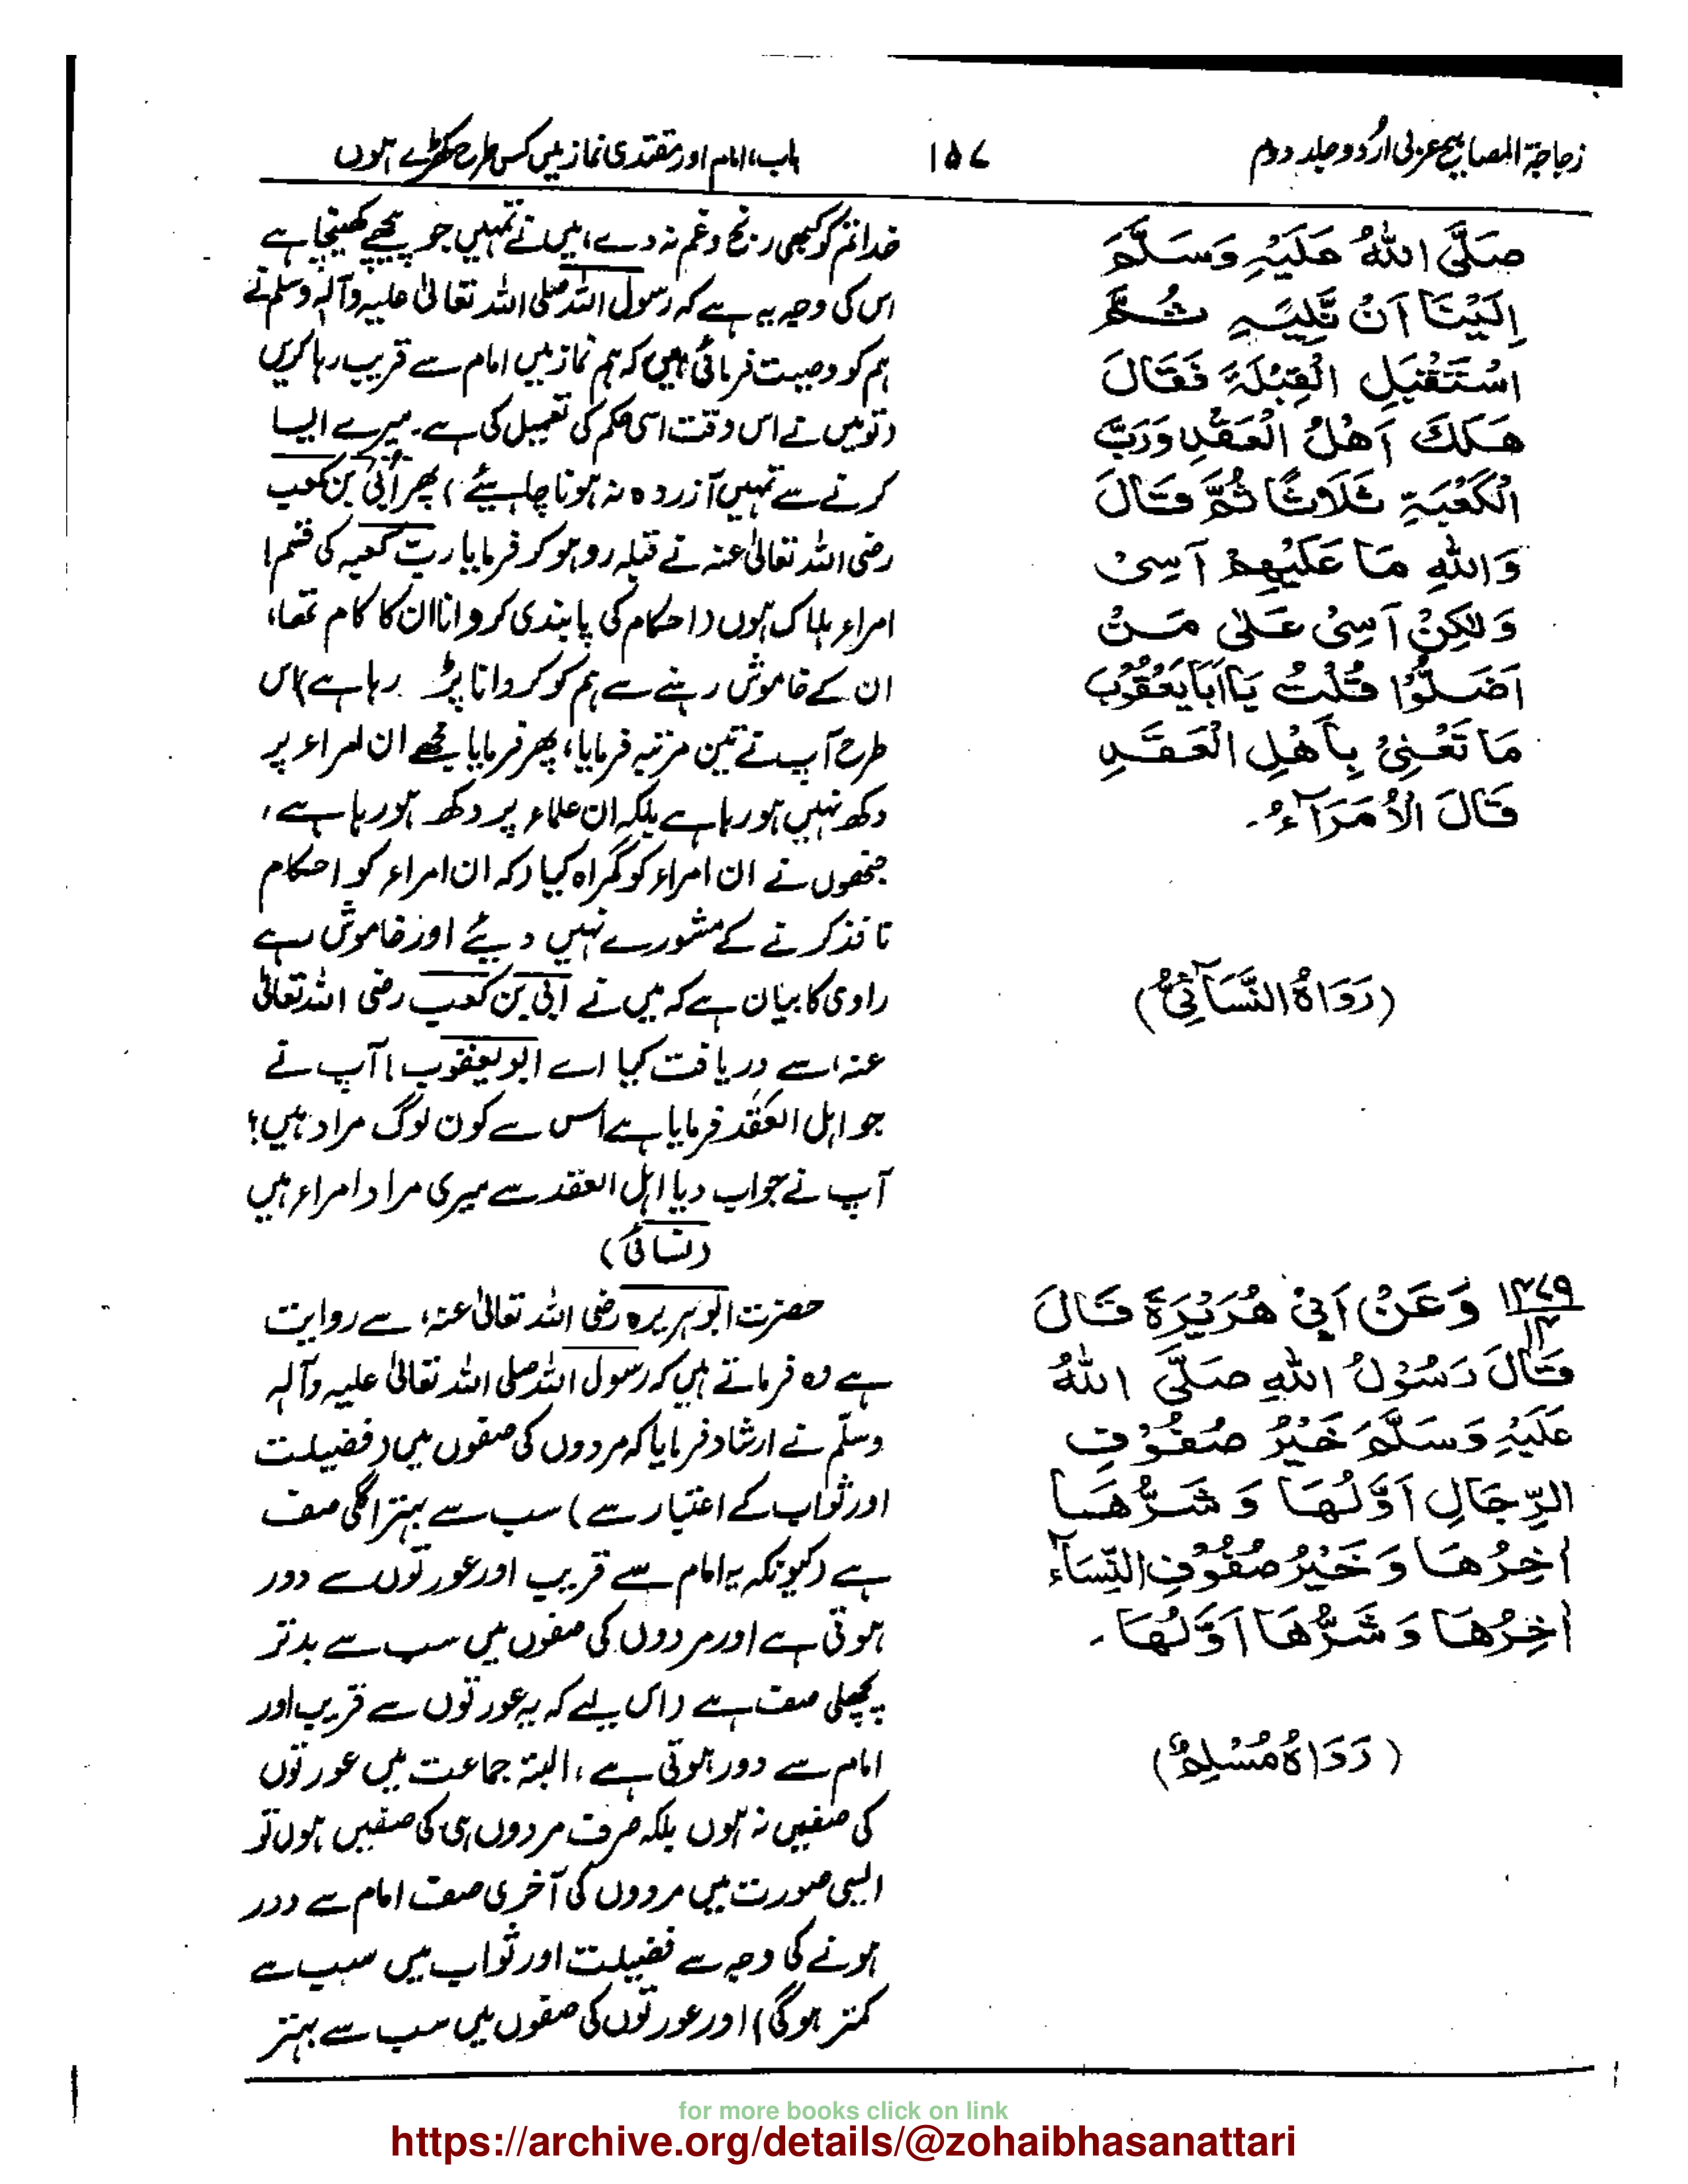 زجاجۃ المصابیح عربی اُردو جلد دوم
۱۵۷
باب، امام اور مقتدی نماز میں کس طرح کھڑے ہوں
صَلَّی اللہُ عَلَیْہِ وَسَلَّمَ
اِلَیْنَا اَنْ تَّلِیَہٖ ثُمَّ
اسْتَقْبَلِ الْقِبْلَۃَ فَقَالَ
ھَلَكَ اَھْلُ الْعَقْدِ وَرَبِّ
الْكَعْبَۃِ ثَلَاثًا ثُمَّ قَالَ
وَاللہِ مَا عَلَیْھِمْ آسِیْ
وَلٰكِنْ آسِیْ عَلٰی مَنْ
اَضَلُّوْا قُلْتُ یَا اَبَا یَعْقُوْبَ
مَا تَعْنِیْ بِاَھْلِ الْعَقْدِ
قَالَ الْاُمَرَآءُ۔
(رَوَاہُ النَّسَآئِیُّ)
خدا تم کو کبھی رنج وغم نہ دے، میں نے تمہیں جو پیچھے کھینچا ہے
اس کی وجہ یہ ہے کہ رسول اللہ صلی اللہ تعالیٰ علیہ وآلہٖ وسلم نے
ہم کو وصیت فرمائی ہیں کہ ہم نماز میں امام سے قریب رہا کریں
(تو میں نے اس وقت اسی حکم کی تعمیل کی ہے۔ میرے ایسا
کرنے سے تمہیں آزردہ نہ ہونا چاہیئے) پھر اُبَیّ بن کعب
رضی اللہ تعالیٰ عنہ نے قبلہ رو ہو کر فرمایا ربّ کعبہ کی قسم!
امراء ہلاک ہوں (احکام کی پابندی کروانا ان کا کام تھا،
ان کے خاموش رہنے سے ہم کو کروانا پڑ رہا ہے) اس
طرح آپ نے تین مرتبہ فرمایا، پھر فرمایا مجھے ان امراء پر
دکھ نہیں ہو رہا ہے بلکہ ان علماء پر دکھ ہو رہا ہے،
جنھوں نے ان امراء کو گمراہ کیا (کہ ان امراء کو احکام
نافذ کرنے کے مشورے نہیں دیئے اور خاموش رہے
راوی کا بیان ہے کہ میں نے اُبی بن کعب رضی اللہ تعالیٰ
عنہ، سے دریافت کیا اے ابو یعقوب! آپ نے
جو اہل العَقَد فرمایا ہے اس سے کون لوگ مراد ہیں؟
آپ نے جواب دیا اہل العقد سے میری مراد امراء ہیں
(نسائی)
۱۳۷۹
۱۳
وَعَنْ اَبِیْ ھُرَیْرَۃَ قَالَ
قَالَ رَسُوْلُ اللہِ صَلَّی اللہُ
عَلَیْہِ وَسَلَّمَ خَیْرُ صُفُوْفِ
الرِّجَالِ اَوَّلُھَا وَ شَرُّھَا
اٰخِرُھَا وَخَیْرُ صُفُوْفِ النِّسَآءِ
اٰخِرُھَا وَشَرُّھَا اَوَّلُھَا۔
(رَوَاہُ مُسْلِمٌ)
حضرت ابو ہریرہ رضی اللہ تعالیٰ عنہ، سے روایت
ہے وہ فرماتے ہیں کہ رسول اللہ صلی اللہ تعالیٰ علیہ وآلہٖ
وسلّم نے ارشاد فرمایا کہ مردوں کی صفوں میں (فضیلت
اور ثواب کے اعتبار سے) سب سے بہتر اگلی صف
ہے (کیونکہ یہ امام سے قریب اور عورتوں سے دور
ہوتی ہے اور مردوں کی صفوں میں سب سے بدتر
پچھلی صف ہے (اس لیے کہ یہ عورتوں سے قریب اور
امام سے دور ہوتی ہے، البتہ جماعت میں عورتوں
کی صفیں نہ ہوں بلکہ صرف مردوں ہی کی صفیں ہوں تو
ایسی صورت میں مردوں کی آخری صف امام سے دور
ہونے کی وجہ سے فضیلت اور ثواب میں سب سے
کمتر ہوگی) اور عورتوں کی صفوں میں سب سے بہتر
for more books click on link
https://archive.org/details/@zohaibhasanattari